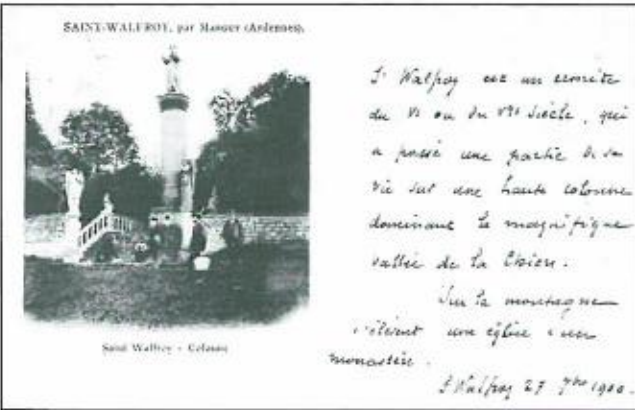 SAINT-WALFROY, par Margut (Ardennes).
Saint Walfroy - Colonne
St Walfroy est un ermite
du VI ou du VIIe siècle, qui
a passé une partie de sa
vie sur une haute colonne
dominant la magnifique
vallée de la Chiers.
Sur la montagne
s'élèvent une église & un
monastère.
St Walfroy 27 7bre 1900.